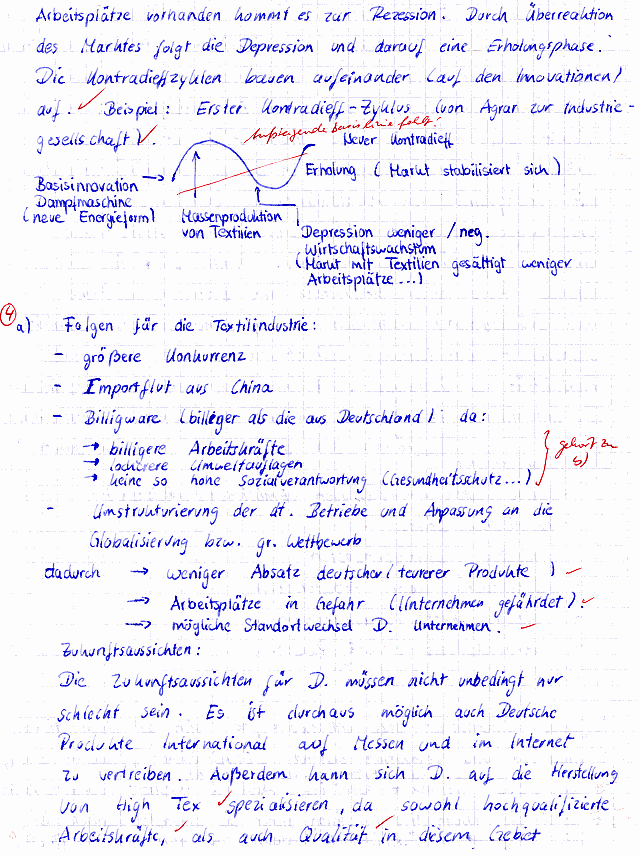 Arbeitsplätze vorhanden kommt es zur Rezession. Durch Überreaktion
des Marktes folgt die Depression und darauf eine Erholungsphase.
Die Kontradieffzyklen bauen aufeinander (auf den Innovationen)
auf. ✓ Beispiel: Erster Kontradieff-Zyklus (von Agrar zur Industrie-
gesellschaft). ✓
Aufsteigende Basislinie fehlt!
Neuer Kontradieff
Erholung (Markt stabilisiert sich)
Basisinnovation
Dampfmaschine
(neue Energieform)
Massenproduktion
von Textilien
Depression weniger / neg.
Wirtschaftswachstum
(Markt mit Textilien gesättigt weniger
Arbeitsplätze...)
4
a) Folgen für die Textilindustrie:
- größere Konkurrenz
- Importflut aus China
- Billigware (billiger als die aus Deutschland) da:
→ billigere Arbeitskräfte
→ lockerere Umweltauflagen
→ keine so hohe Sozialverantwortung (Gesundheitsschutz...)
gehört zu
b)
- Umstrukturierung der dt. Betriebe und Anpassung an die
Globalisierung bzw. gr. Wettbewerb
dadurch → weniger Absatz deutscher (teurerer Produkte)
→ Arbeitsplätze in Gefahr (Unternehmen gefährdet). ✓
→ mögliche Standortwechsel D. Unternehmen.
Zukunftsaussichten:
Die Zukunftsaussichten für D. müssen nicht unbedingt nur
schlecht sein. Es ist durchaus möglich auch Deutsche
Produkte International auf Messen und im Internet
zu vertreiben. Außerdem kann sich D. auf die Herstellung
von High Tex ✓ spezialisieren, da sowohl hochqualifizierte
Arbeitskräfte, ✓ als auch Qualität ✓ in diesem Gebiet